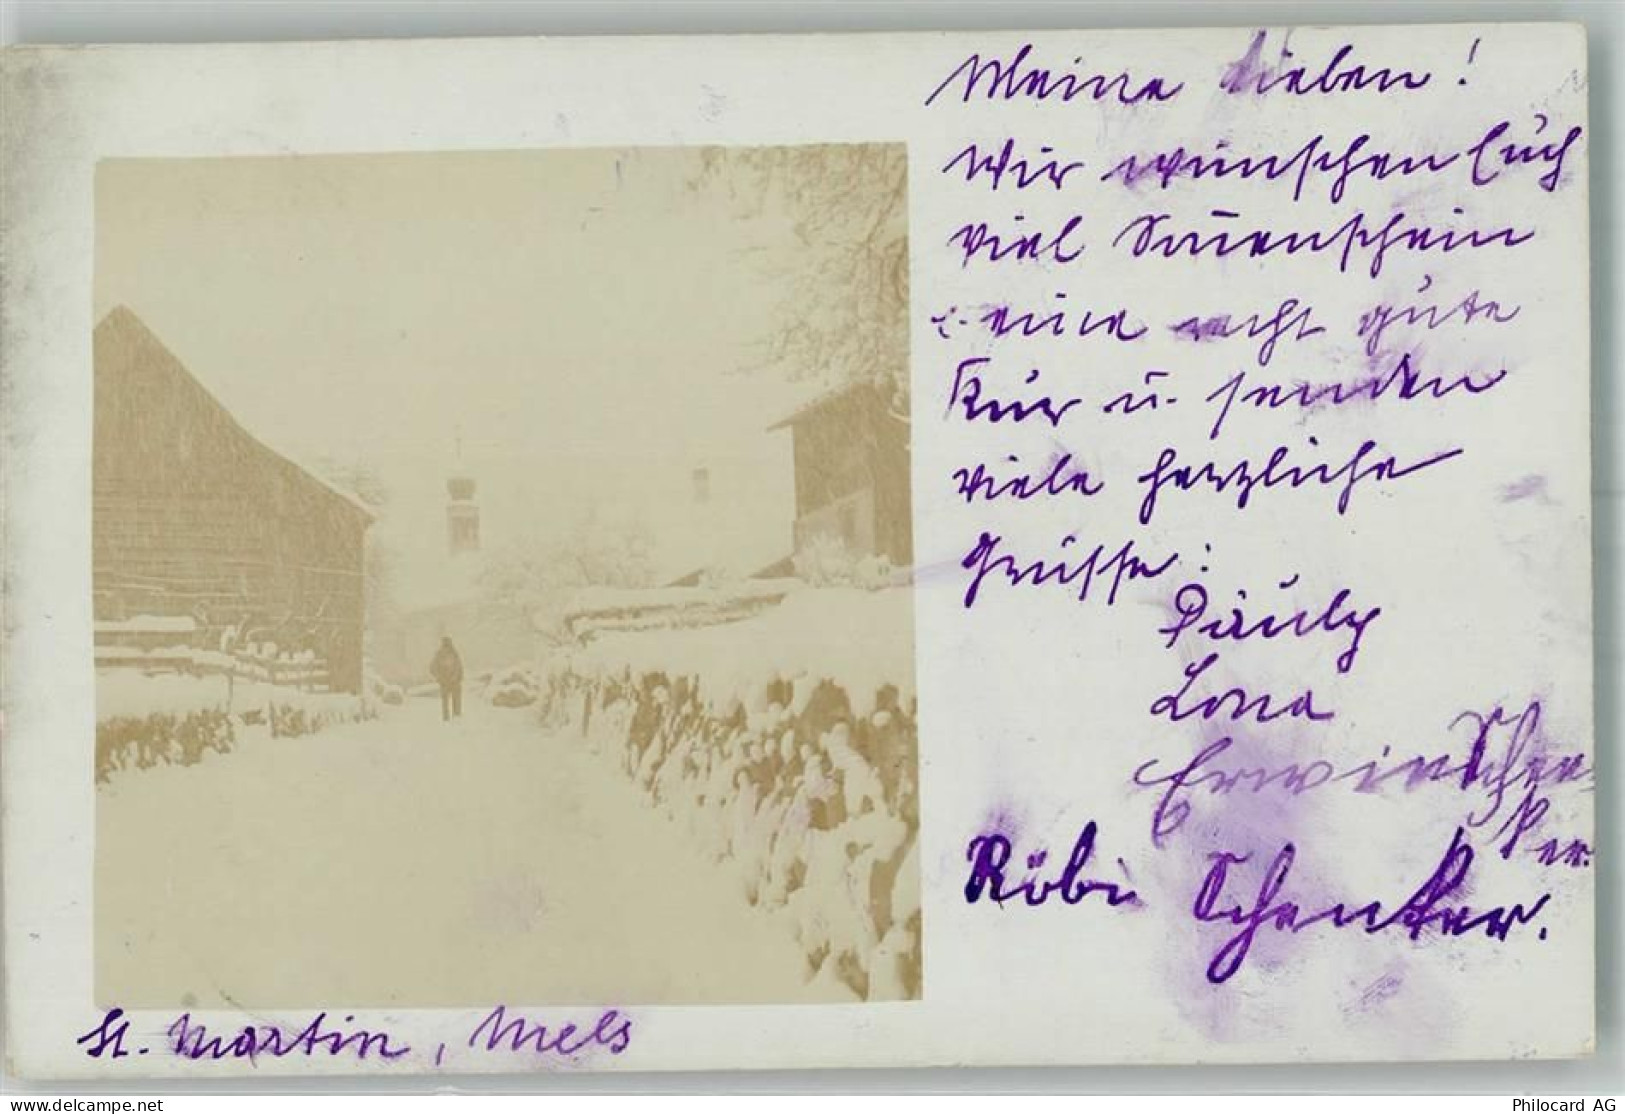 Meine Lieben!
Wir wünschen Euch
viel Sonnenschein
u. eine recht gute
Kur u. senden
viele herzliche
Grüsse:
Pauly
Lona
Erwin Schen
ker.
Röbi Schenker.
St. Martin, Mels
www.delcampe.net
Philocard AG